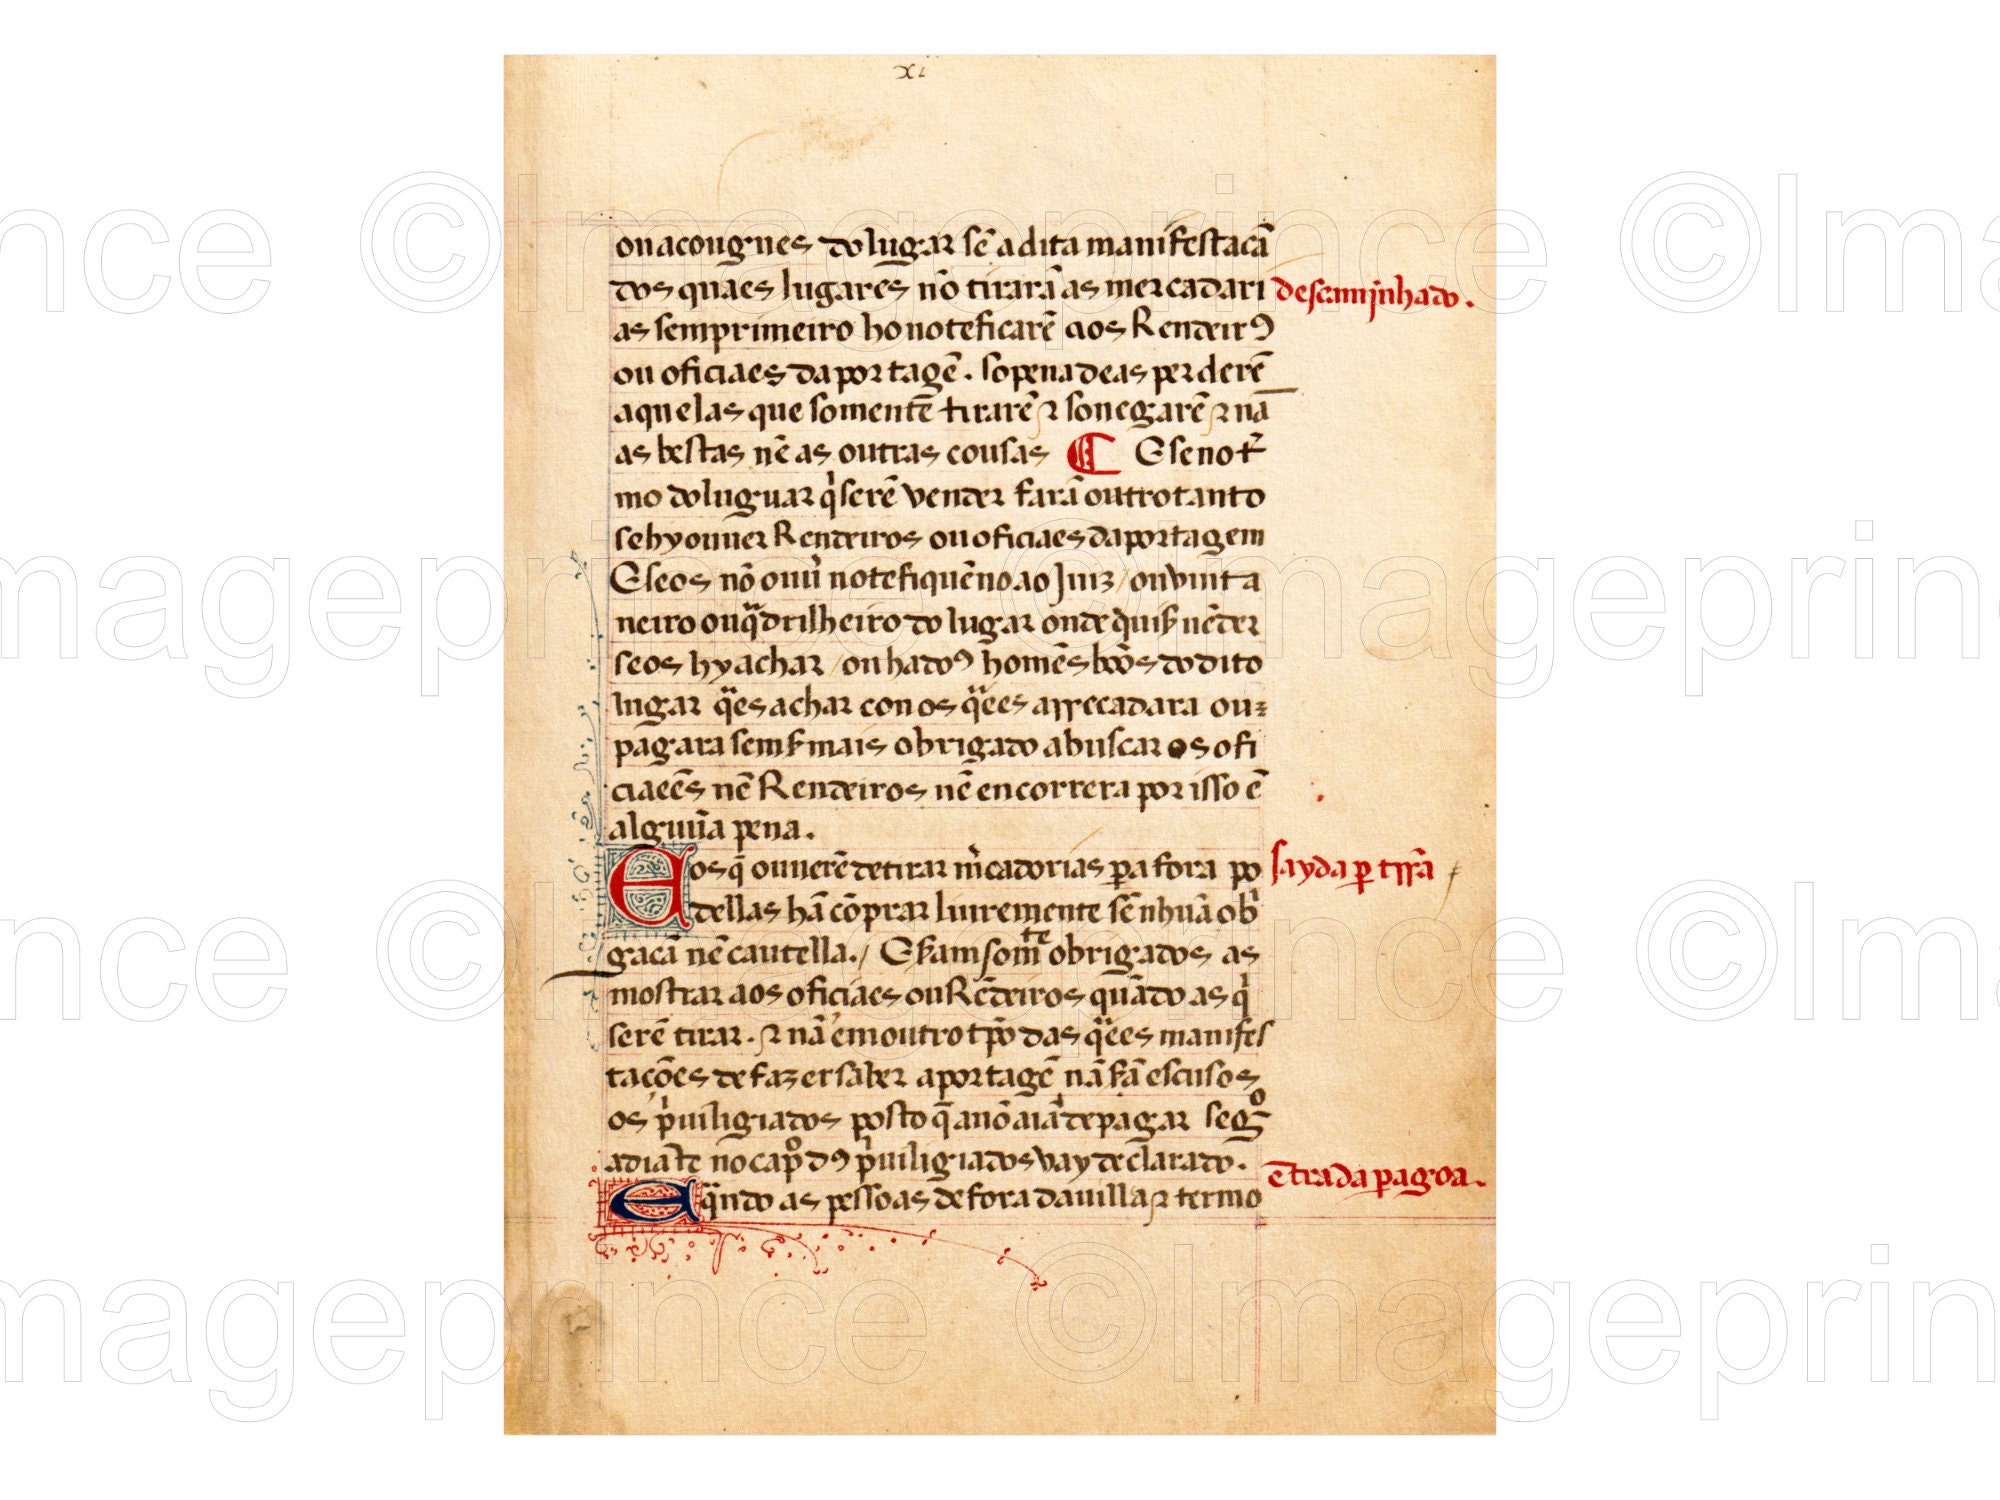 xi
ou açougues do lugar sẽ a dita manifestaçã
dos quães lugares nõ tirarã as mercadari
descaminhado.
as sem primeiro ho noteficarẽ aos Rendeirꝯ
ou oficiaes da portagẽ. so pena de as perderẽ
aquelas que somentẽ tirarẽ ⁊ sonegarẽ ⁊ nã
as bestas nẽ as outras cousas E se no ter
mo do luguar q̃ serẽ vender farã outro tanto
se hy ouuer Rendeiros ou oficiaes da portagem
E se os nõ ouũ notefiquẽ no ao Juiz / ou vinta
neiro ou quadrilheiro do lugar onde quiser uẽder
se os hy achar / ou ha doꝯ homẽs bõos do dito
lugar q̃es achar con os q̃ees arrecadara ou
pagara sem ser mais obrigado a buscar os ofi
ciaeẽs nẽ Rendeiros nẽ encorrera por isso ẽ
alguũa pena.
E os q̃ ouuerẽ de tirar mcadorias pa fora po
sayda per trra
dellas hã cõprar liuremente sẽ nhuã obri
gaçã nẽ cautella. / E seram somte obrigados as
mostrar aos oficiaes ou Rẽdeiros quãdo as q̃
serẽ tirar. ⁊ nã em outro tpo das q̃ees manifes
tações de fazer saber a portagẽ nã serã escusos
os priuiligiados posto q̃ a nõ aiã de pagar sego
adiãte no capo dꝯ priuiligiados vay declarado.
entrada per agoa.
E quando as pessoas de fora da uilla ⁊ termo
©Imageprince